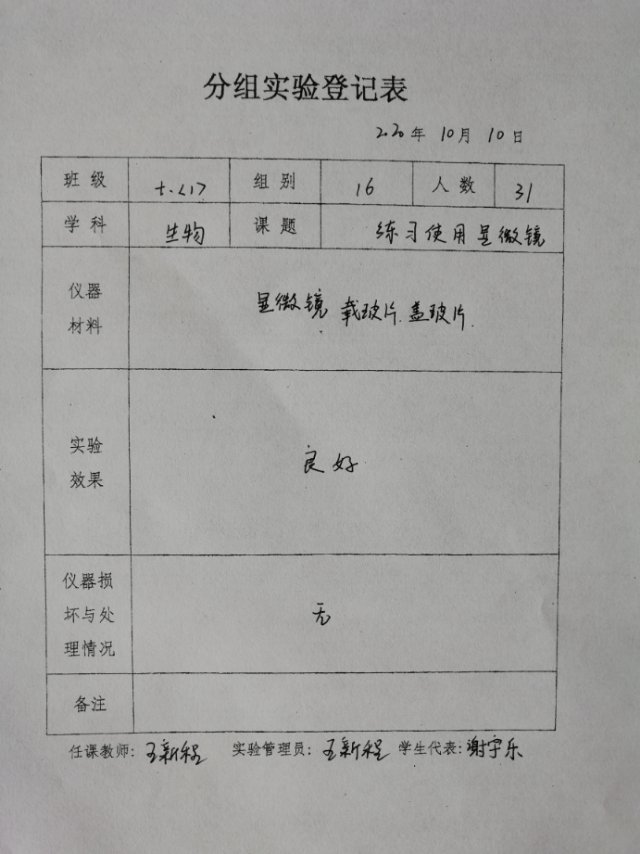 分组实验登记表
2020年 10月 10日
班级 七.<1> 组别 16 人数 31
学科 生物 课题 练习使用显微镜
仪器材料 显微镜 载玻片.盖玻片.
实验效果 良好
仪器损坏与处理情况 无
备注
任课教师: 王新程 实验管理员: 王新程 学生代表: 谢宇乐